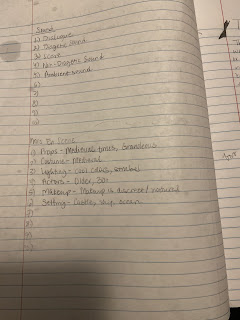 Sound
1) Dialogue
2) Diagetic Sound
3) Score
4) Non-Diagetic Sound
5) Ambient sound
6)
7)
8)
9)
10)
Mise En Scene
1) Props - Medieval times, Grandeous
2) Costume - Medieval
3) Lighting - Cool colors,
4) Actors - Older, 30+
5) Makeup - Makeup is discreed natural
6) Setting - Castle, ship, ocean
7)
8)
9)
10)